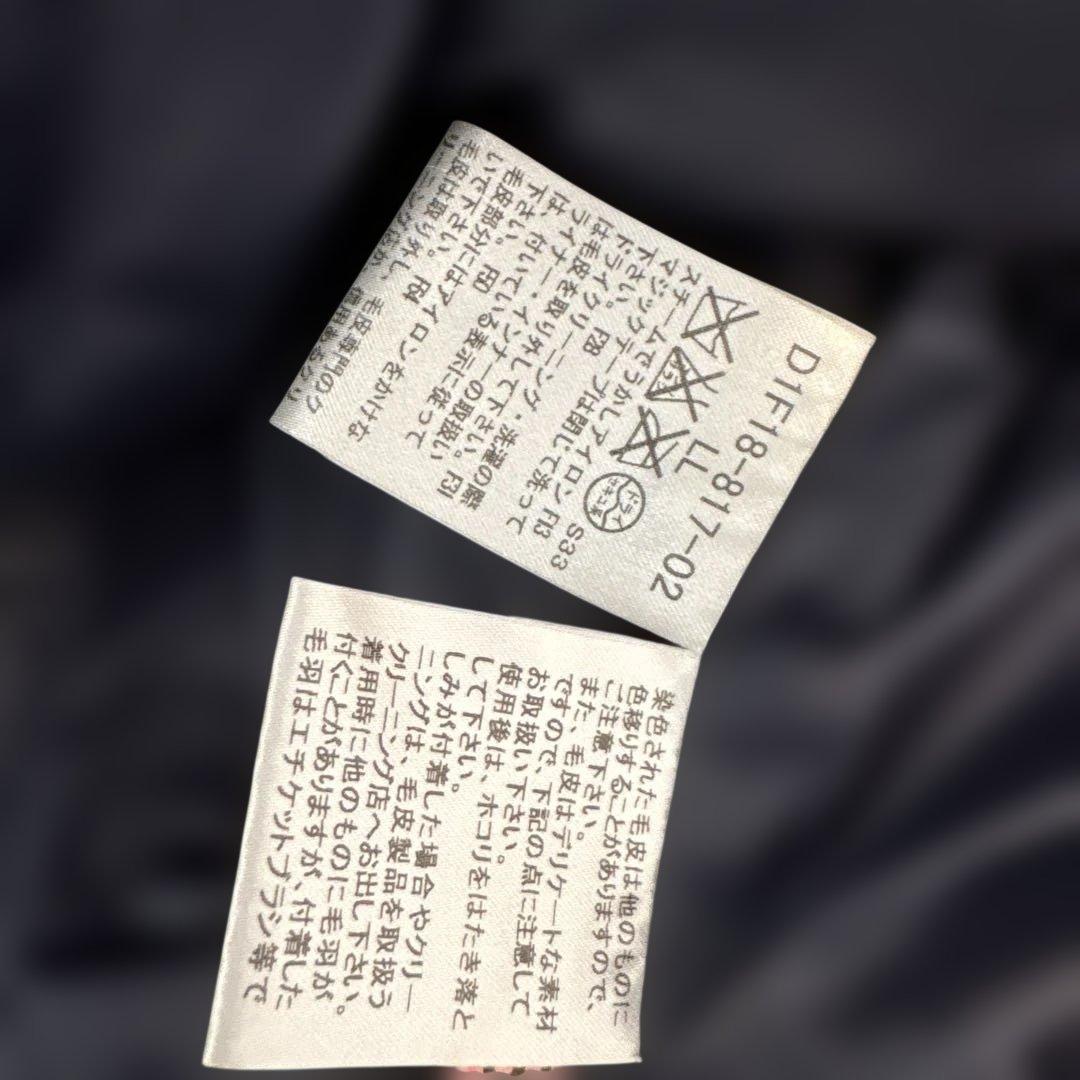 D1F18-817-02
LL
エンソ
ドライ
セキユ系
スチームでうかしアイロン F13 S33
マジックテープは閉じて洗って
下さい。 F28
ドライクリーニング・洗濯の際
は毛皮を取り外して下さい。 F31
ライナー・インナーの取扱い
は、付いている表示に従って
下さい。 F50
毛皮部分にはアイロンをかけな
いで下さい。 F04
毛皮は取り外し、毛皮専門のク
染色された毛皮は他のものに
色移りすることがありますので、
ご注意下さい。
また、毛皮はデリケートな素材
ですので、下記の点に注意して
お取扱い下さい。
使用後は、ホコリをはたき落と
して下さい。
しみが付着した場合やクリー
ニングは、毛皮製品を取扱う
クリーニング店へお出し下さい。
着用時に他のものに毛羽が
付くことがありますが、付着した
毛羽はエチケットブラシ等で